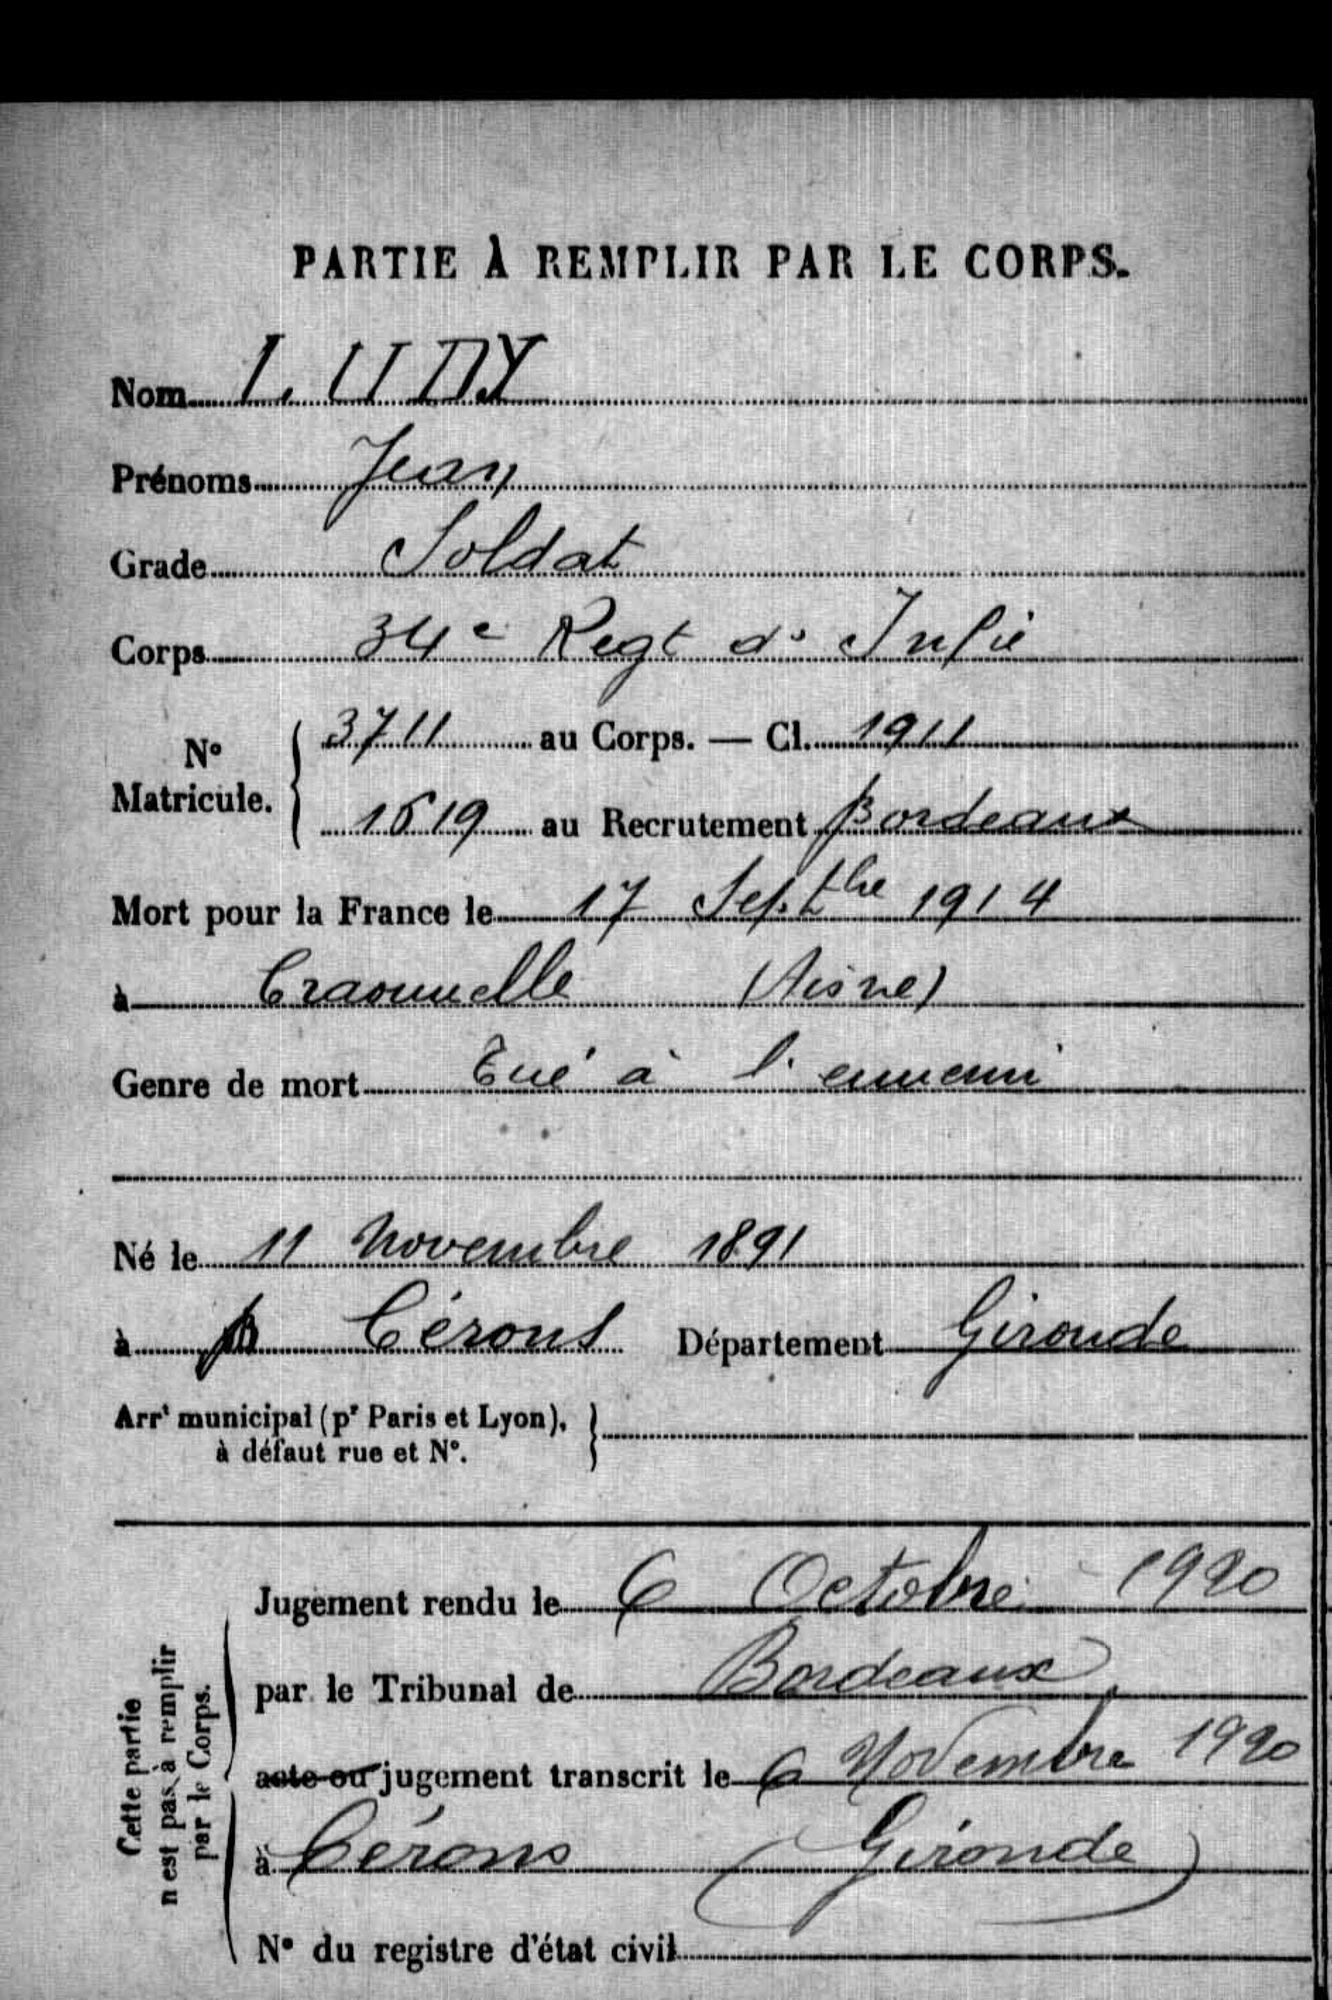 PARTIE À REMPLIR PAR LE CORPS.
Nom LUDY
Prénoms Jean
Grade Soldat
Corps 34e Regt d' Infie
N° Matricule. 3711 au Corps. — Cl. 1911
1619 au Recrutement Bordeaux
Mort pour la France le 17 Septbre 1914
à Craonnelle (Aisne)
Genre de mort Tué à l'ennemi
Né le 11 Novembre 1891
à Cérons Département Gironde
Arrt municipal (pr Paris et Lyon),
à défaut rue et N°.
Cette partie
n'est pas à remplir
par le Corps.
Jugement rendu le 6 Octobre 1920
par le Tribunal de Bordeaux
acte ou jugement transcrit le 6 Novembre 1920
à Cérons (Gironde)
N° du registre d'état civil